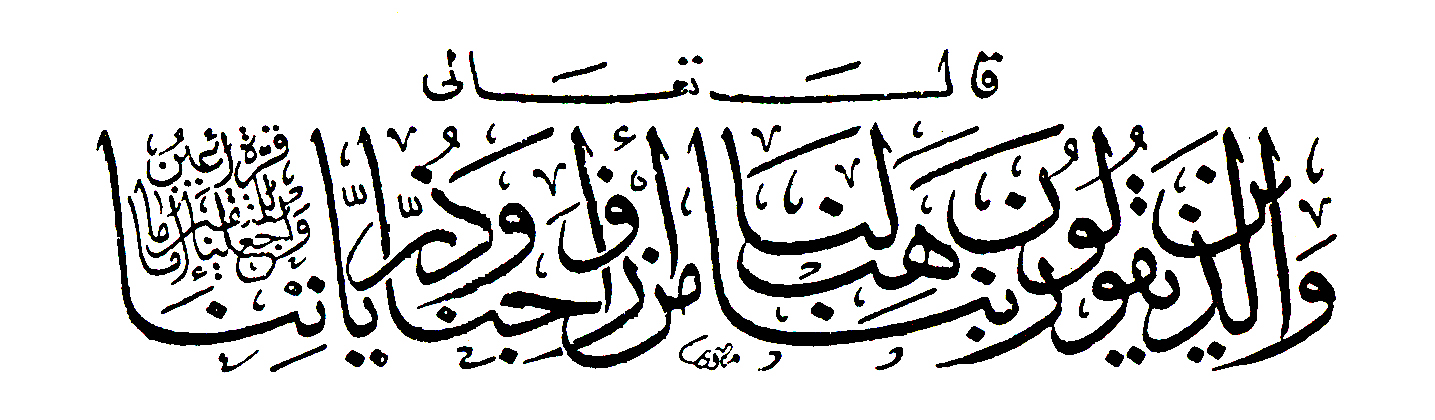 قال تعالى
وَالَّذِينَ يَقُولُونَ رَبَّنَا هَبْ لَنَا مِنْ أَزْوَاجِنَا وَذُرِّيَّاتِنَا قُرَّةَ أَعْيُنٍ وَاجْعَلْنَا لِلْمُتَّقِينَ إِمَامًا